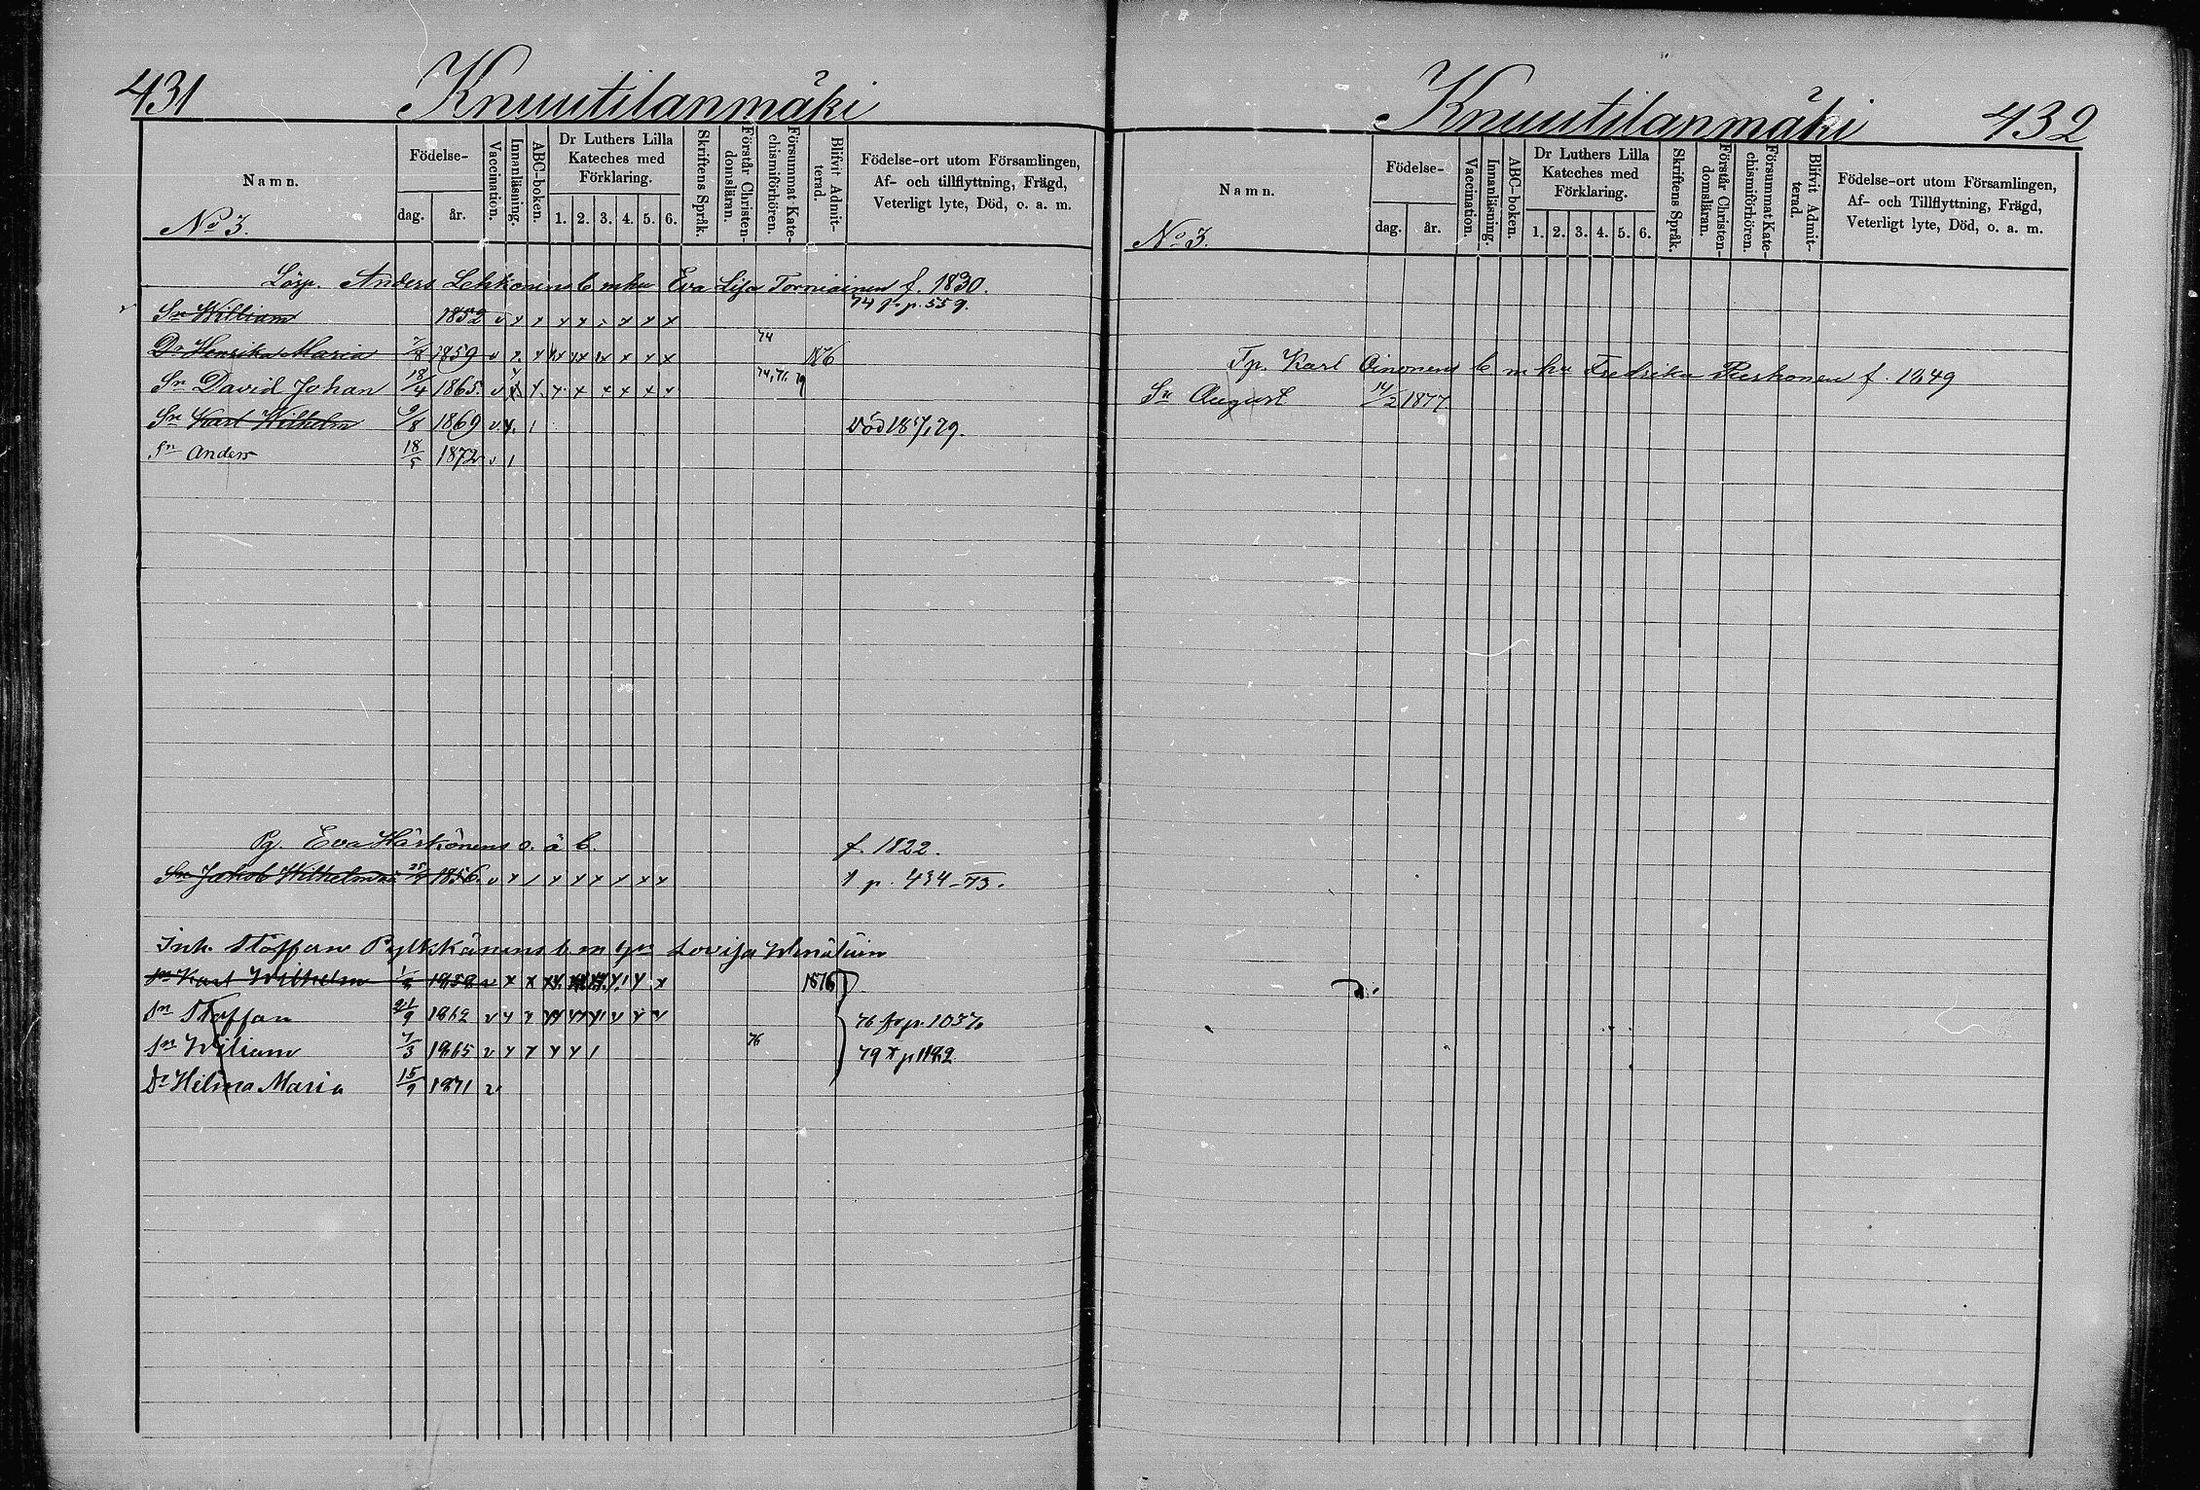 431 Knuutilanmäki
Namn. Födelse- dag. år. Vaccination. Innanläsning. ABC-boken. Dr Luthers Lilla Kateches med Förklaring. 1. 2. 3. 4. 5. 6. Skriftens Språk. Förstår Christen-domsläran. Försummat Kate-chismiförhören. Blifvit Admit-terad. Födelse-ort utom Församlingen, Af- och tillflyttning, Frägd, Veterligt lyte, Död, o. a. m.
No 3.
Lösp. Anders Lehkonens b m hu Eva Lisa Torniainen f. 1830.
Sn William 1852 v x x x x x x x 74 p. 559.
Dr Henrika Maria 7/8 1859 v x x x x x x x x 74 1876
Sn David Johan 18/4 1865. v x x x x x x x x 74, 71. 79
Sn Karl Wilhelm 9/8 1869 v. x. 1 död 18 79.
Sn Anders 18/5 1872 v 1
Pg. Eva Härkönens o. ä b. f. 1822.
Sn Jakob Wilhelm 1856. v x / x x x x x x p. 434-73.
Inh. Staffan Pylkkänens b m Lovisa
Sn Karl Wilhelm 1858 v x x 1876
Sn Staffan 21/9 1862 v 76 p. 1037
Sn Wiliam 7/3 1865 v x x x x 1 76 79 x p 1182
Dr Helma Maria 15/9 1871 v
Knuutilanmäki 432
Namn. Födelse- dag. år. Vaccination. Innanläsning. ABC-boken. Dr Luthers Lilla Kateches med Förklaring. 1. 2. 3. 4. 5. 6. Skriftens Språk. Förstår Christen-domsläran. Försummat Kate-chismiförhören. Blifvit Admit-terad. Födelse-ort utom Församlingen, Af- och Tillflyttning, Frägd, Veterligt lyte, Död, o. a. m.
No 3.
Tp. Karl Oinonens b m hu Fredrika f. 1849
Sn August 14/2 1877